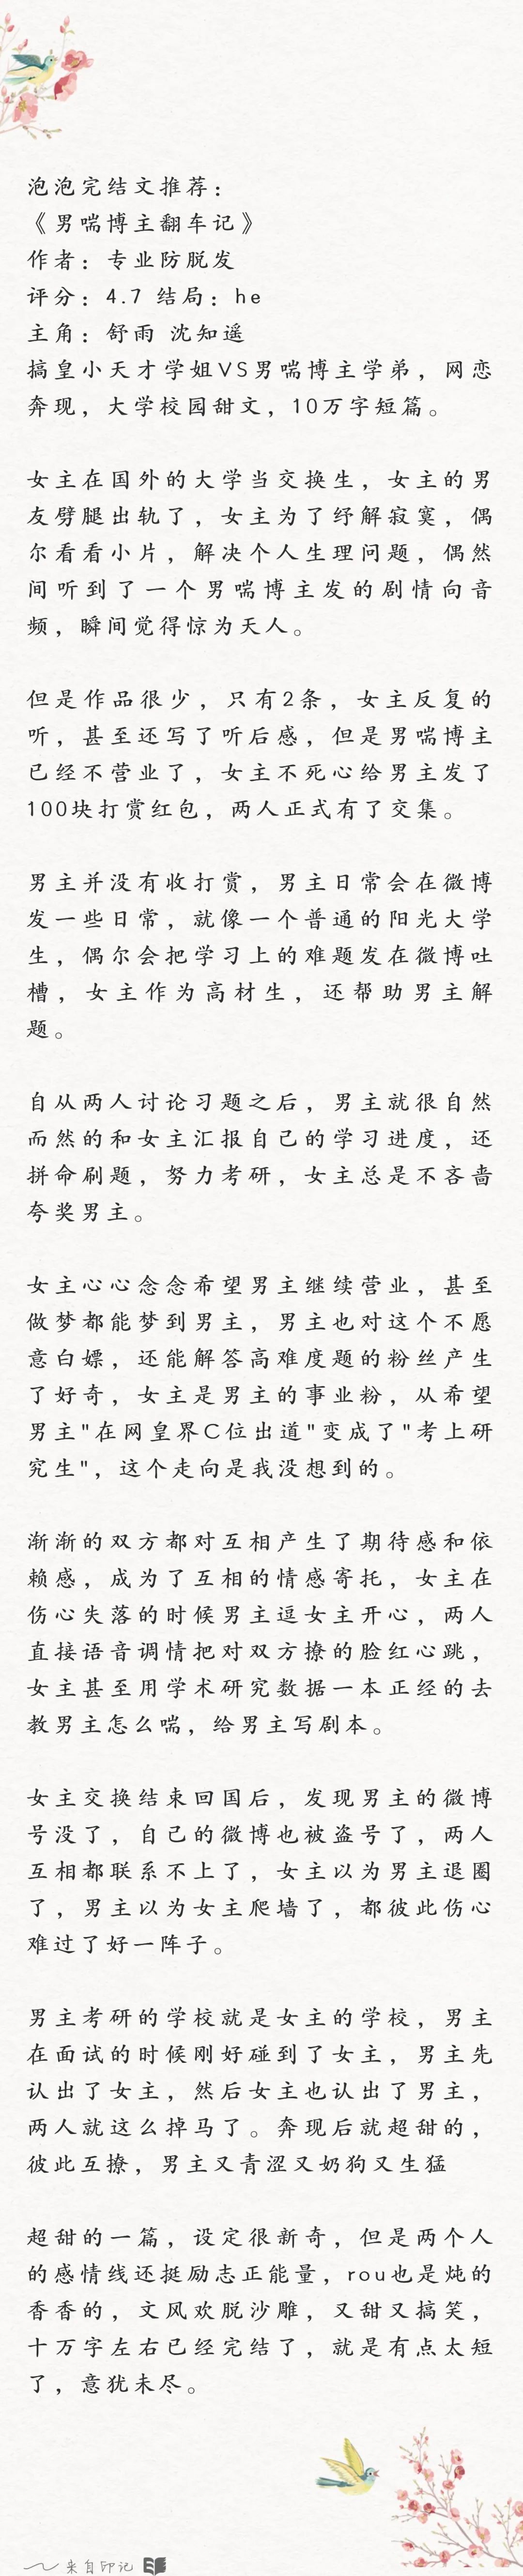 泡泡完结文推荐：
《男喘博主翻车记》
作者：专业防脱发
评分：4.7 结局：he
主角：舒雨 沈知遥
搞皇小天才学姐VS男喘博主学弟，网恋
奔现，大学校园甜文，10万字短篇。
女主在国外的大学当交换生，女主的男
友劈腿出轨了，女主为了纾解寂寞，偶
尔看看小片，解决个人生理问题，偶然
间听到了一个男喘博主发的剧情向音
频，瞬间觉得惊为天人。
但是作品很少，只有2条，女主反复的
听，甚至还写了听后感，但是男喘博主
已经不营业了，女主不死心给男主发了
100块打赏红包，两人正式有了交集。
男主并没有收打赏，男主日常会在微博
发一些日常，就像一个普通的阳光大学
生，偶尔会把学习上的难题发在微博吐
槽，女主作为高材生，还帮助男主解
题。
自从两人讨论习题之后，男主就很自然
而然的和女主汇报自己的学习进度，还
拼命刷题，努力考研，女主总是不吝啬
夸奖男主。
女主心心念念希望男主继续营业，甚至
做梦都能梦到男主，男主也对这个不愿
意白嫖，还能解答高难度题的粉丝产生
了好奇，女主是男主的事业粉，从希望
男主"在网皇界C位出道"变成了"考上研
究生"，这个走向是我没想到的。
渐渐的双方都对互相产生了期待感和依
赖感，成为了互相的情感寄托，女主在
伤心失落的时候男主逗女主开心，两人
直接语音调情把对双方撩的脸红心跳，
女主甚至用学术研究数据一本正经的去
教男主怎么喘，给男主写剧本。
女主交换结束回国后，发现男主的微博
号没了，自己的微博也被盗号了，两人
互相都联系不上了，女主以为男主退圈
了，男主以为女主爬墙了，都彼此伤心
难过了好一阵子。
男主考研的学校就是女主的学校，男主
在面试的时候刚好碰到了女主，男主先
认出了女主，然后女主也认出了男主，
两人就这么掉马了。奔现后就超甜的，
彼此互撩，男主又青涩又奶狗又生猛
超甜的一篇，设定很新奇，但是两个人
的感情线还挺励志正能量，rou也是炖的
香香的，文风欢脱沙雕，又甜又搞笑，
十万字左右已经完结了，就是有点太短
了，意犹未尽。
来自印记